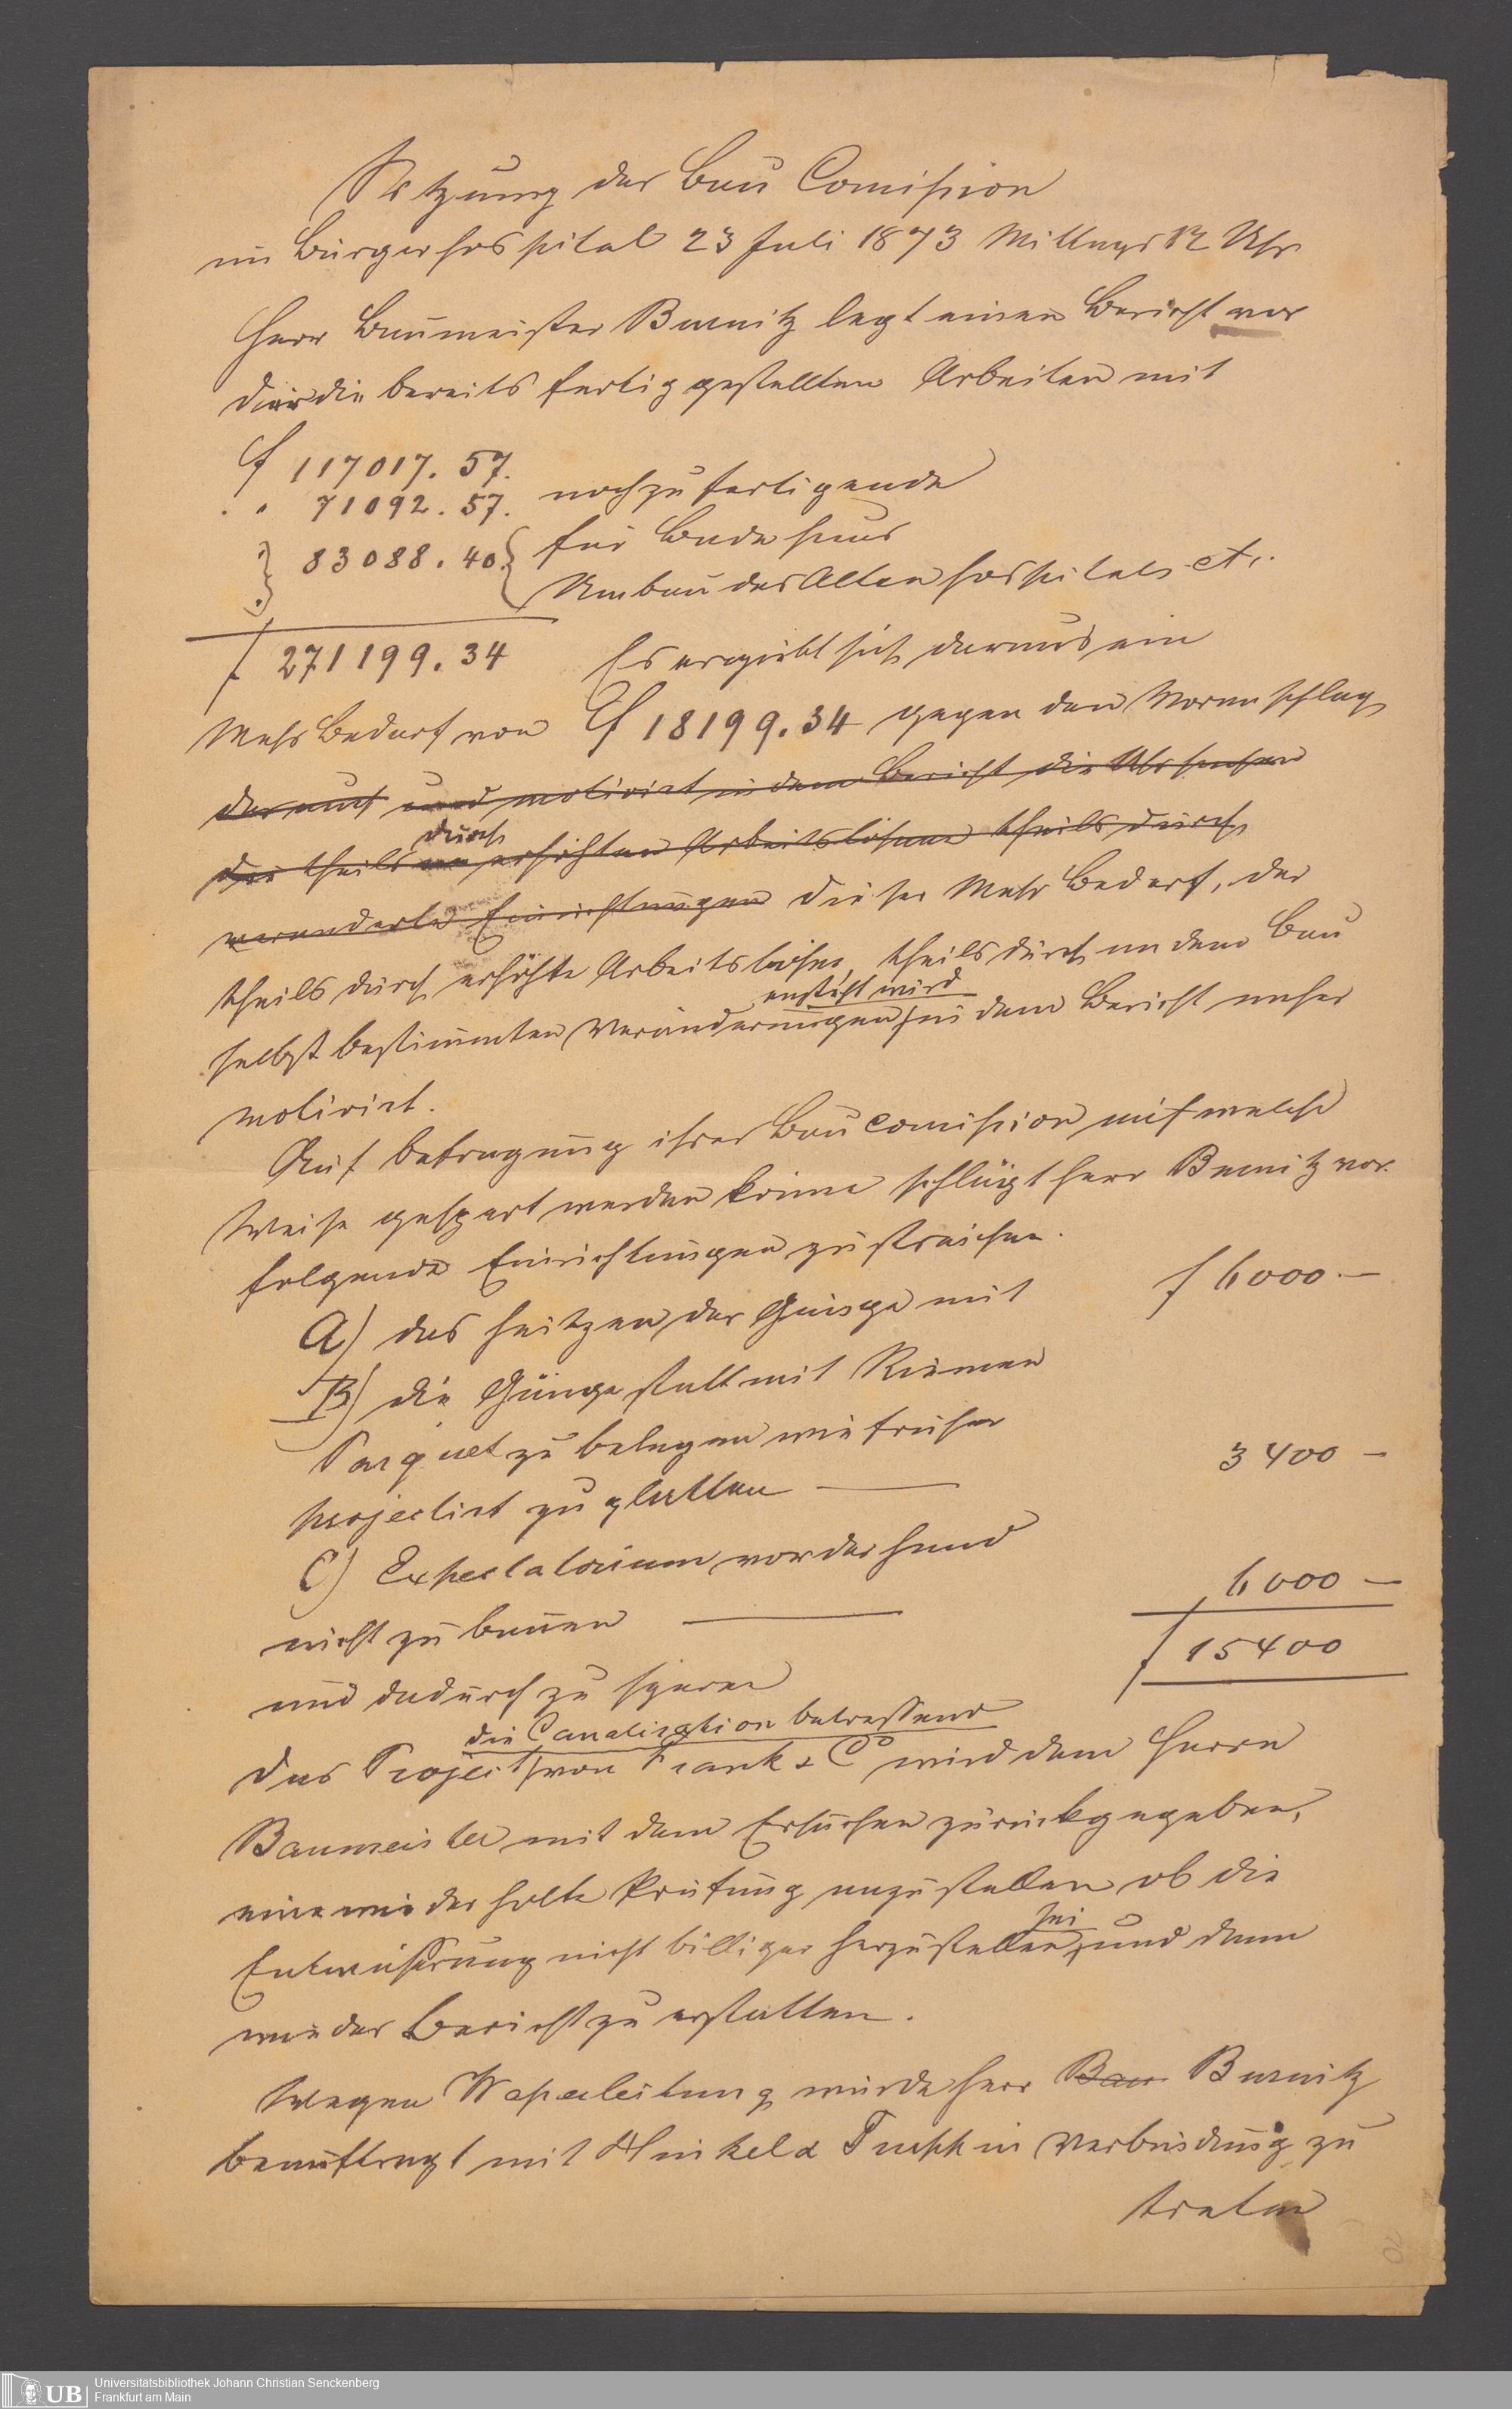 Sitzung der Bau Comission
im Bürgerhospital 23 Juli 1873 Mittags 12 Uhr
Herr Baumeister Burnitz legt einen Bericht vor
über die bereits fertig gestellten Arbeiten mit
f 117017. 57.
" 71092. 57. noch zu fertigende
83088. 40 für Badehaus
Umbau des Alten Hospitals etc.
f 271199. 34 Es ergiebt sich daraus ein
Mehr Bedarf von f 18199. 34 gegen den Voranschlag
der auch und motivirt in dem Bericht die Ursachen
durch
die theils erhöhten Arbeitslöhne theils durch
veränderte Einrichtungen dieser Mehr Bedarf, der
theils durch erhöhte Arbeitslöhne, theils durch an dem Bau
erzielt wird
selbst bestimmten Veränderungen in dem Bericht näher
motivirt.
Auf befragung ihrer Bau Comission auf welche
Weise gespart werden könne schlägt Herr Burnitz vor
folgende Einrichtungen zu streichen.
A) das heitzen der Gänge mit f 6000.—
B) die Gänge statt mit Riemen
Parquet zu belegen wie früher
projectirt zu platten — 3400 —
C) Expectatorium vor der Hand
nicht zu bauen — 6000 —
und dadurch zu sparen f 15400
die Canalisation betreffend
Das Project von Frank & Co wird dem Herrn
Baumeister mit dem Ersuchen zurückgegeben,
eine wiederholte Prüfung anzustellen ob die
sei
Entwässerung nicht billiger herzustellen, und dann
wieder Bericht zu erstatten.
Wegen Wasserleitung wurde Herr Bau Burnitz
beauftragt mit Hinkel & Trapp in Verbindung zu
treten
Universitätsbibliothek Johann Christian Senckenberg
Frankfurt am Main
UB